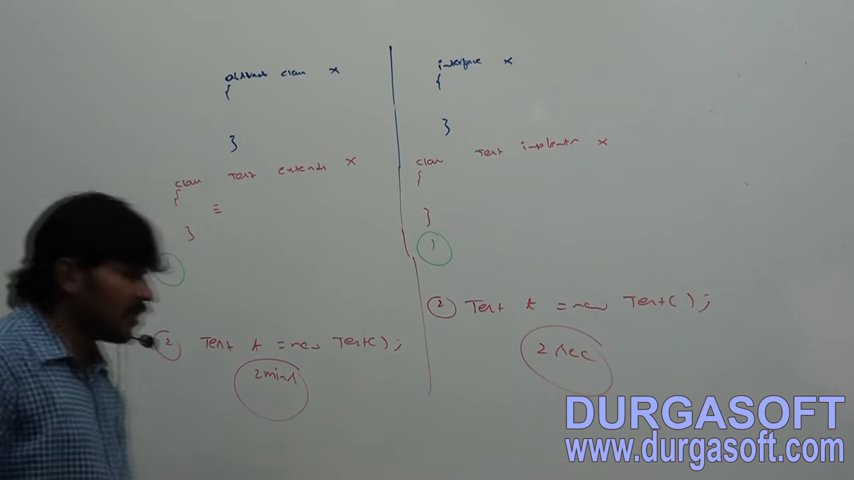 abstract class X
{
}
class Test extends X
{
≡
}
② Test t = new Test();
2 mins
interface X
{
}
class Test implements X
{
}
1
② Test t = new Test();
2 sec
DURGASOFT
www.durgasoft.com